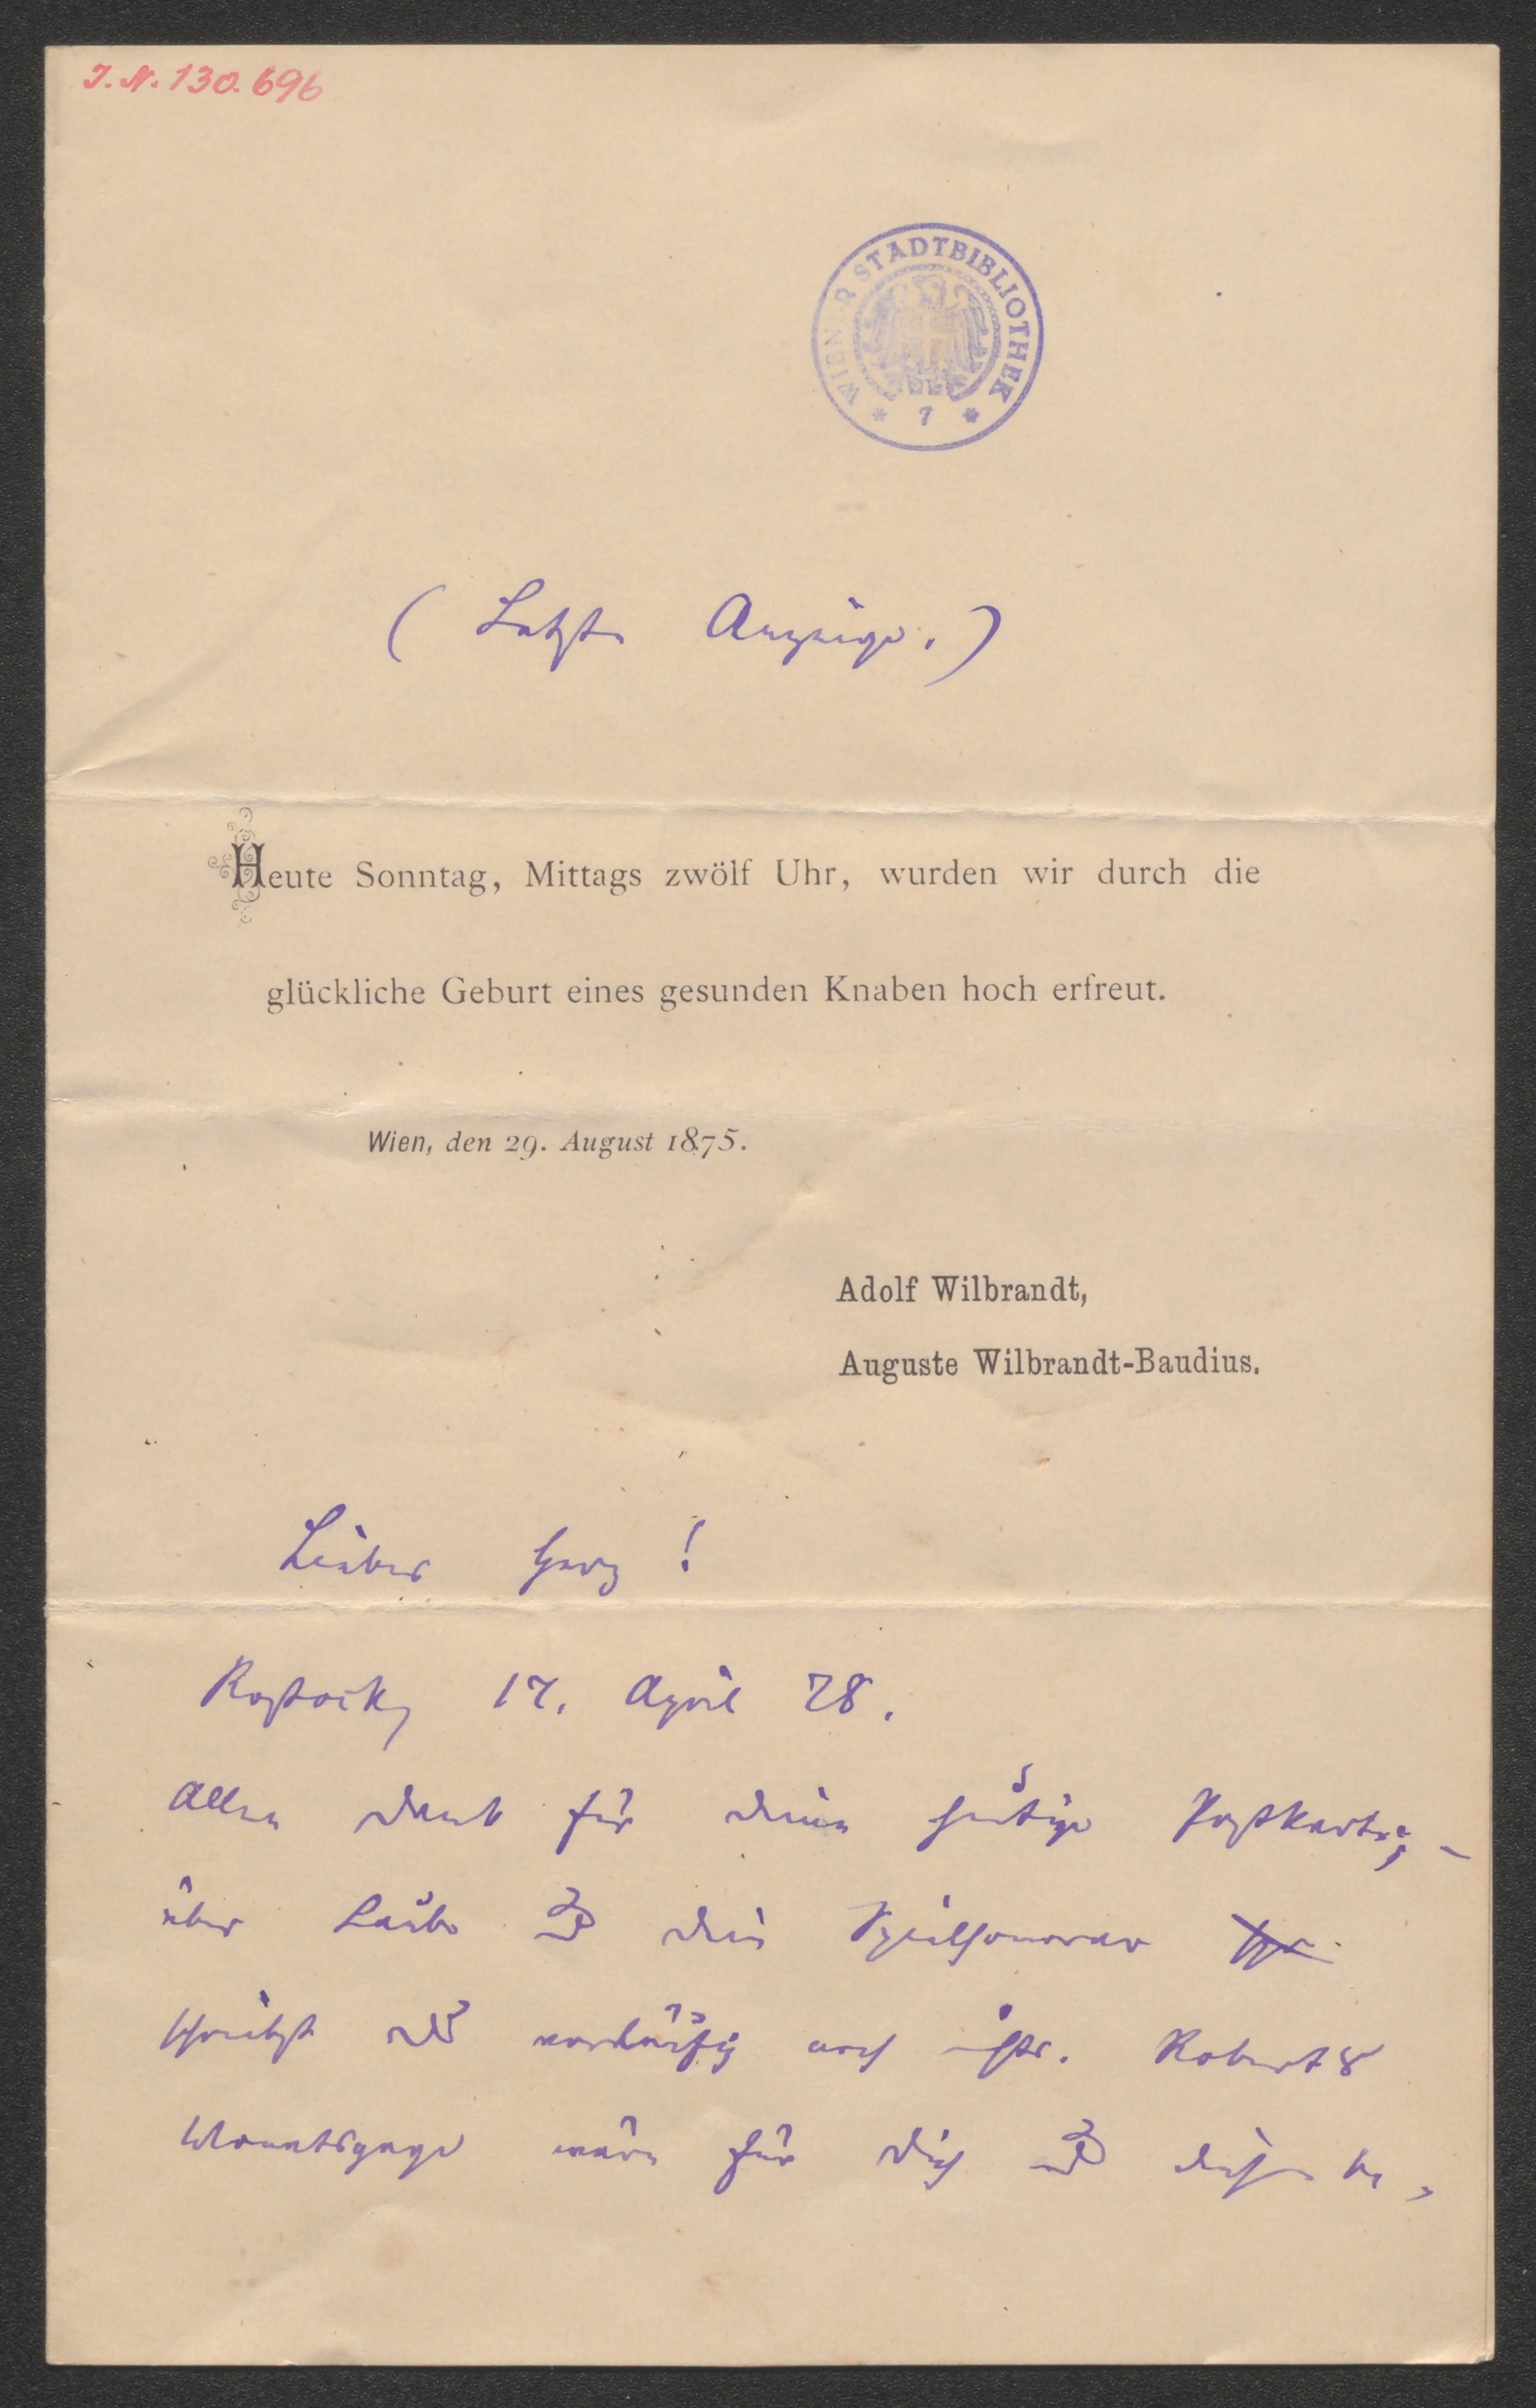 J. N. 130.696
WIENER STADTBIBLIOTHEK
* 7 *
(Letzte Anzeige.)
Heute Sonntag, Mittags zwölf Uhr, wurden wir durch die
glückliche Geburt eines gesunden Knaben hoch erfreut.
Wien, den 29. August 1875.
Adolf Wilbrandt,
Auguste Wilbrandt-Baudius.
Lieber Herz!
Rostock, 17. April 78.
Allen Dank für deine heutige Postkarte; –
über Laube und dein Spielhonorar
schreibst du vorläufig noch Roberts
Monatsgage wäre für dich und